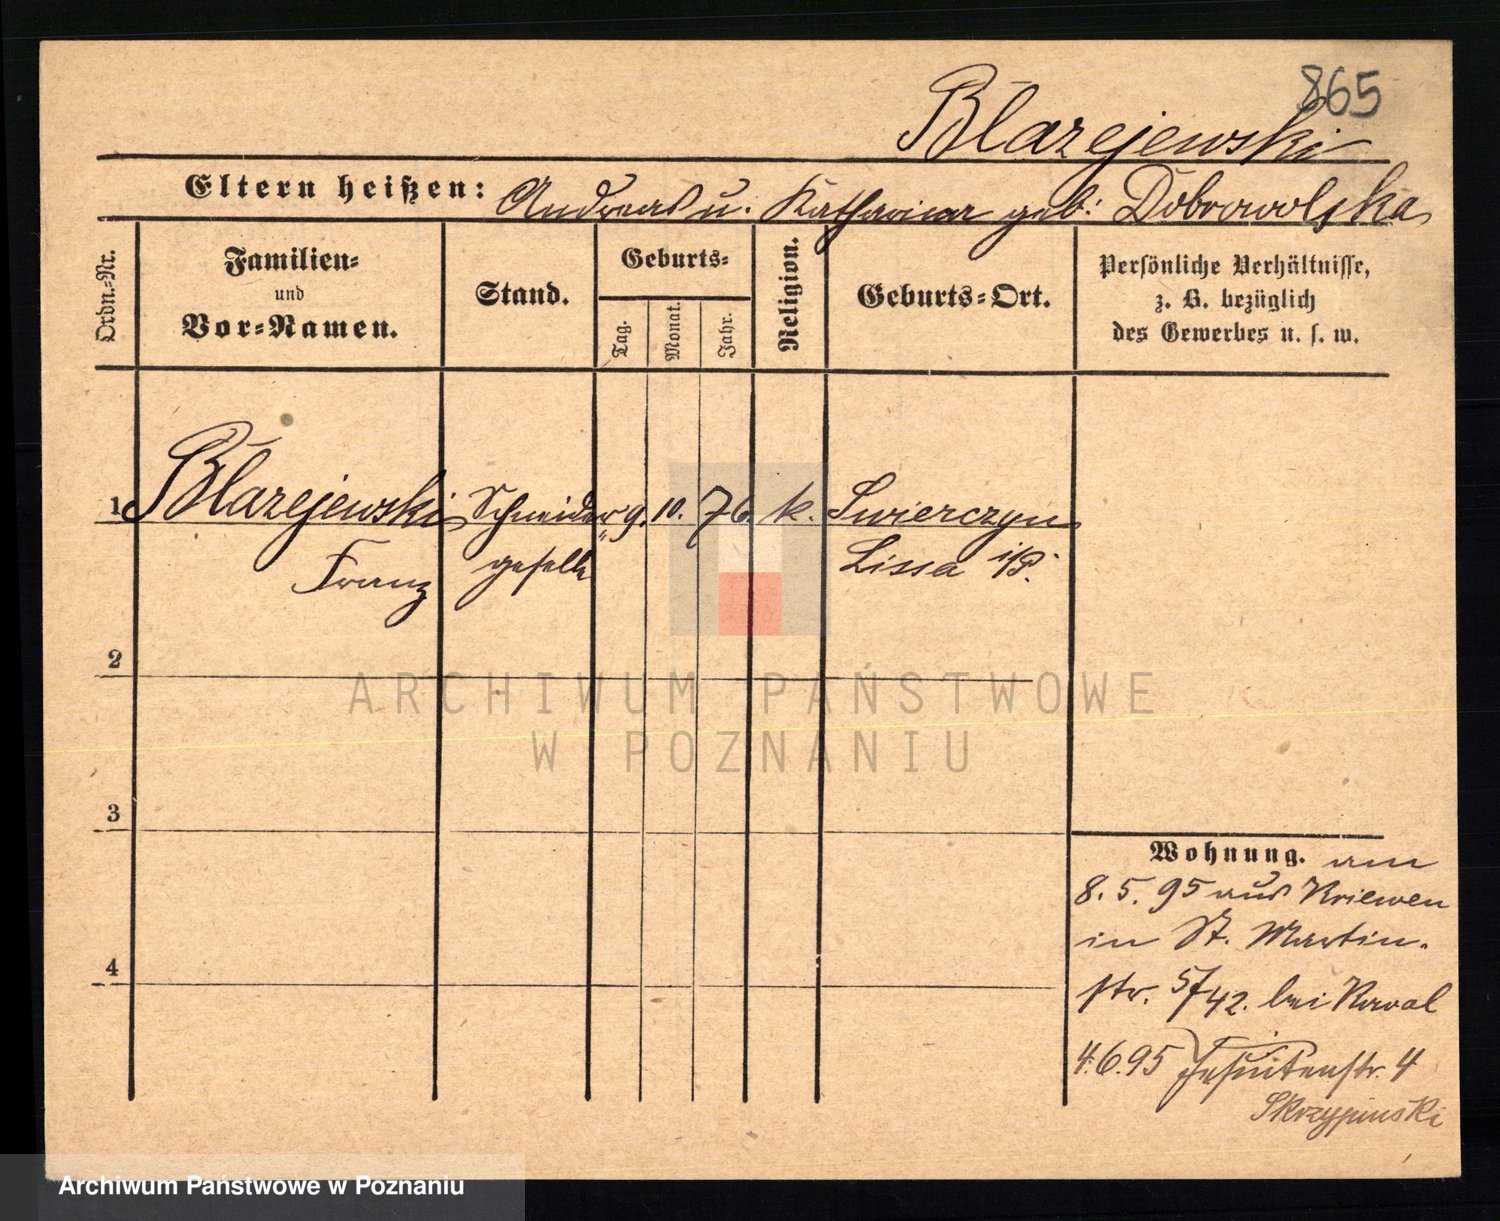 865
Blazejewski
Eltern heißen: Andreas u. Katharina geb: Dobrowolska
Ordn.-Nr.
Familien-
und
Vor-Namen.
Stand.
Geburts-
Tag.
Monat.
Jahr.
Religion.
Geburts-Ort.
Persönliche Verhältnisse,
z. B. bezüglich
des Gewerbes u. s. w.
1 Blazejewski Schneider 9. 10. 76. k. Swierczyn
Franz geselle Lissa i/P.
2
3
4
Wohnung. am
8. 5. 95 aus Kriewen
in St. Martin-
str. 5/42. bei Nawal
4.6.95 Jesuitenstr. 4
Skrzypinski
ARCHIWUM PAŃSTWOWE
W POZNANIU
Archiwum Państwowe w Poznaniu